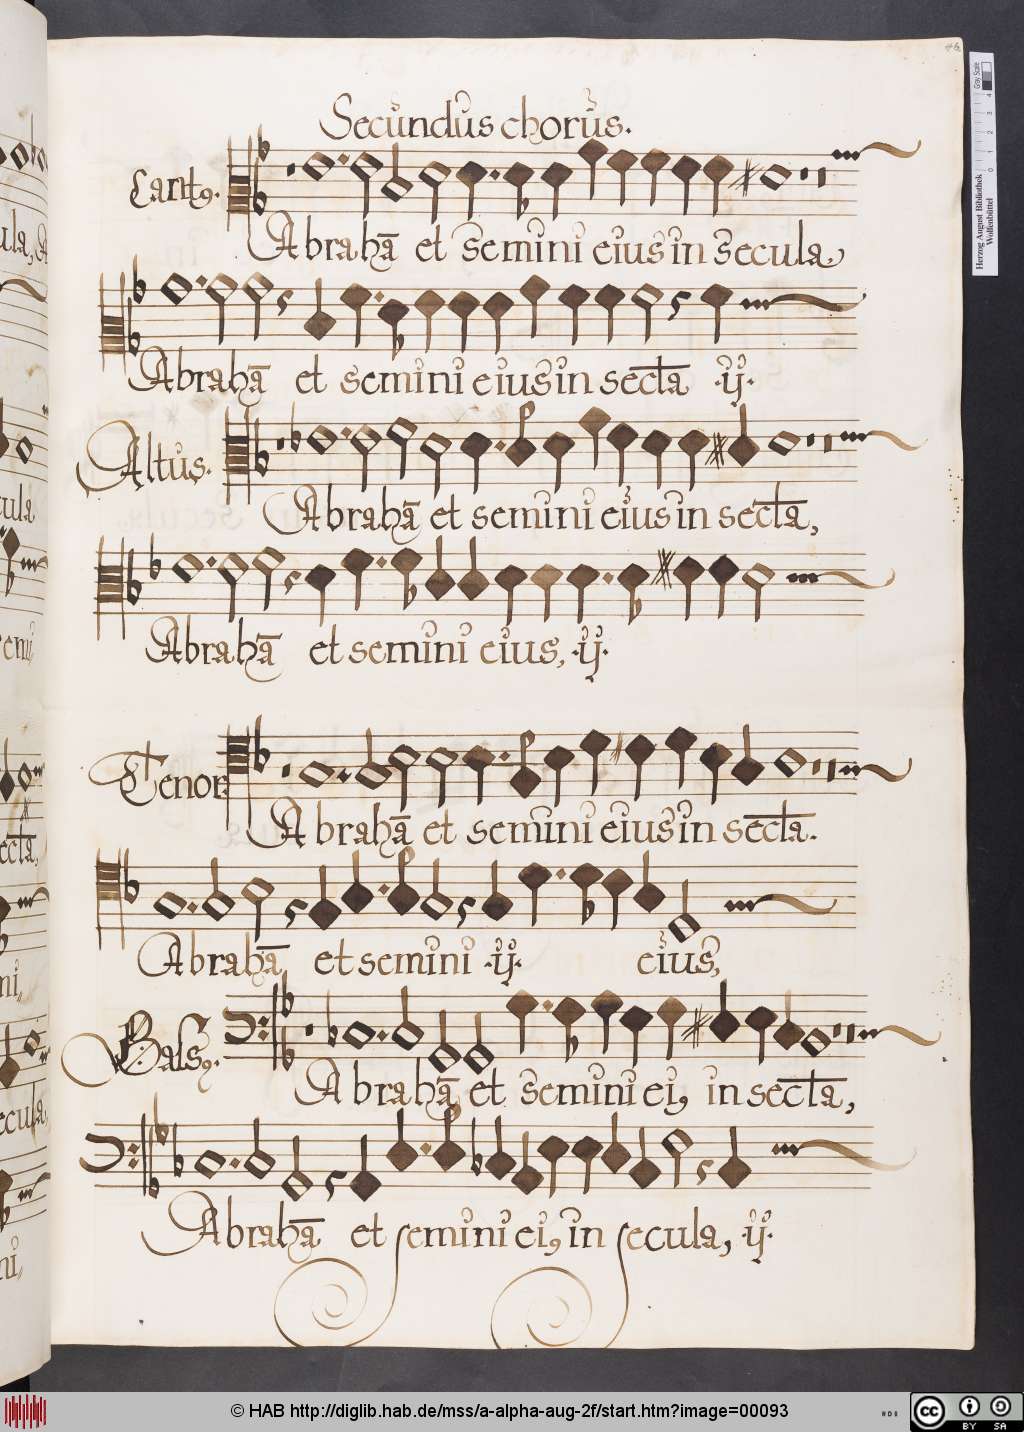 46
Secundus chorus.
Cantꝯ.
Abrahā et semini eius in secula,
Abrahā et semini eius in sec̄ta ·ij·
Altus.
Abrahā et semini eius in sec̄ta,
Abrahā et semini eius, ·ij·
Tenor
Abrahā et semini eius in sec̄ta.
Abrahā et semini ·ij· eius,
Bassꝯ.
Abrahā et semini eiꝯ in sec̄ta,
Abrahā et semini eiꝯ in secula, ·ij·
ula, A
cula
semi
ecta,
ni,
ecula,
ni,
Herzog August Bibliothek
Wolfenbüttel
Gray Scale
0 1 2 3 4
© HAB http://diglib.hab.de/mss/a-alpha-aug-2f/start.htm?image=00093
HAB
cc BY SA